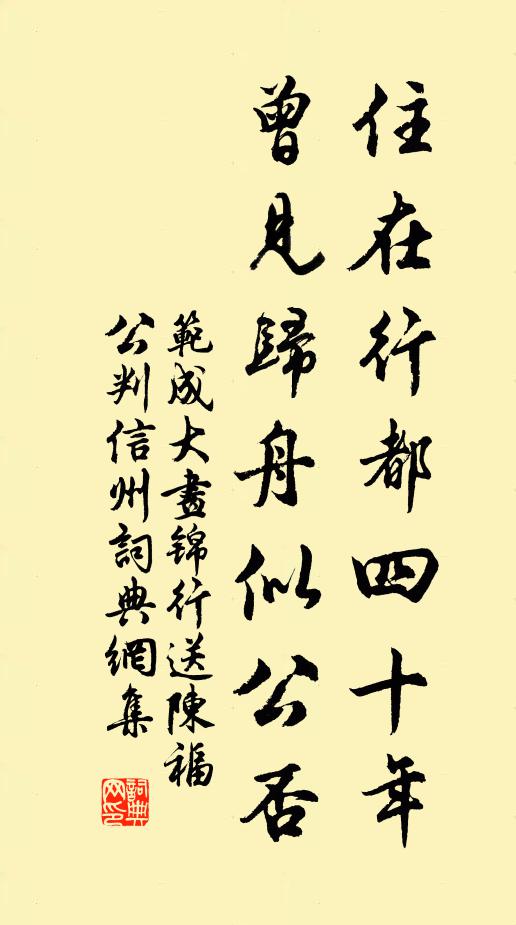 住在行都四十年
曾見歸舟似公否
範成大晝錦行送陳福
公判信州詞典網集
詞典
网印